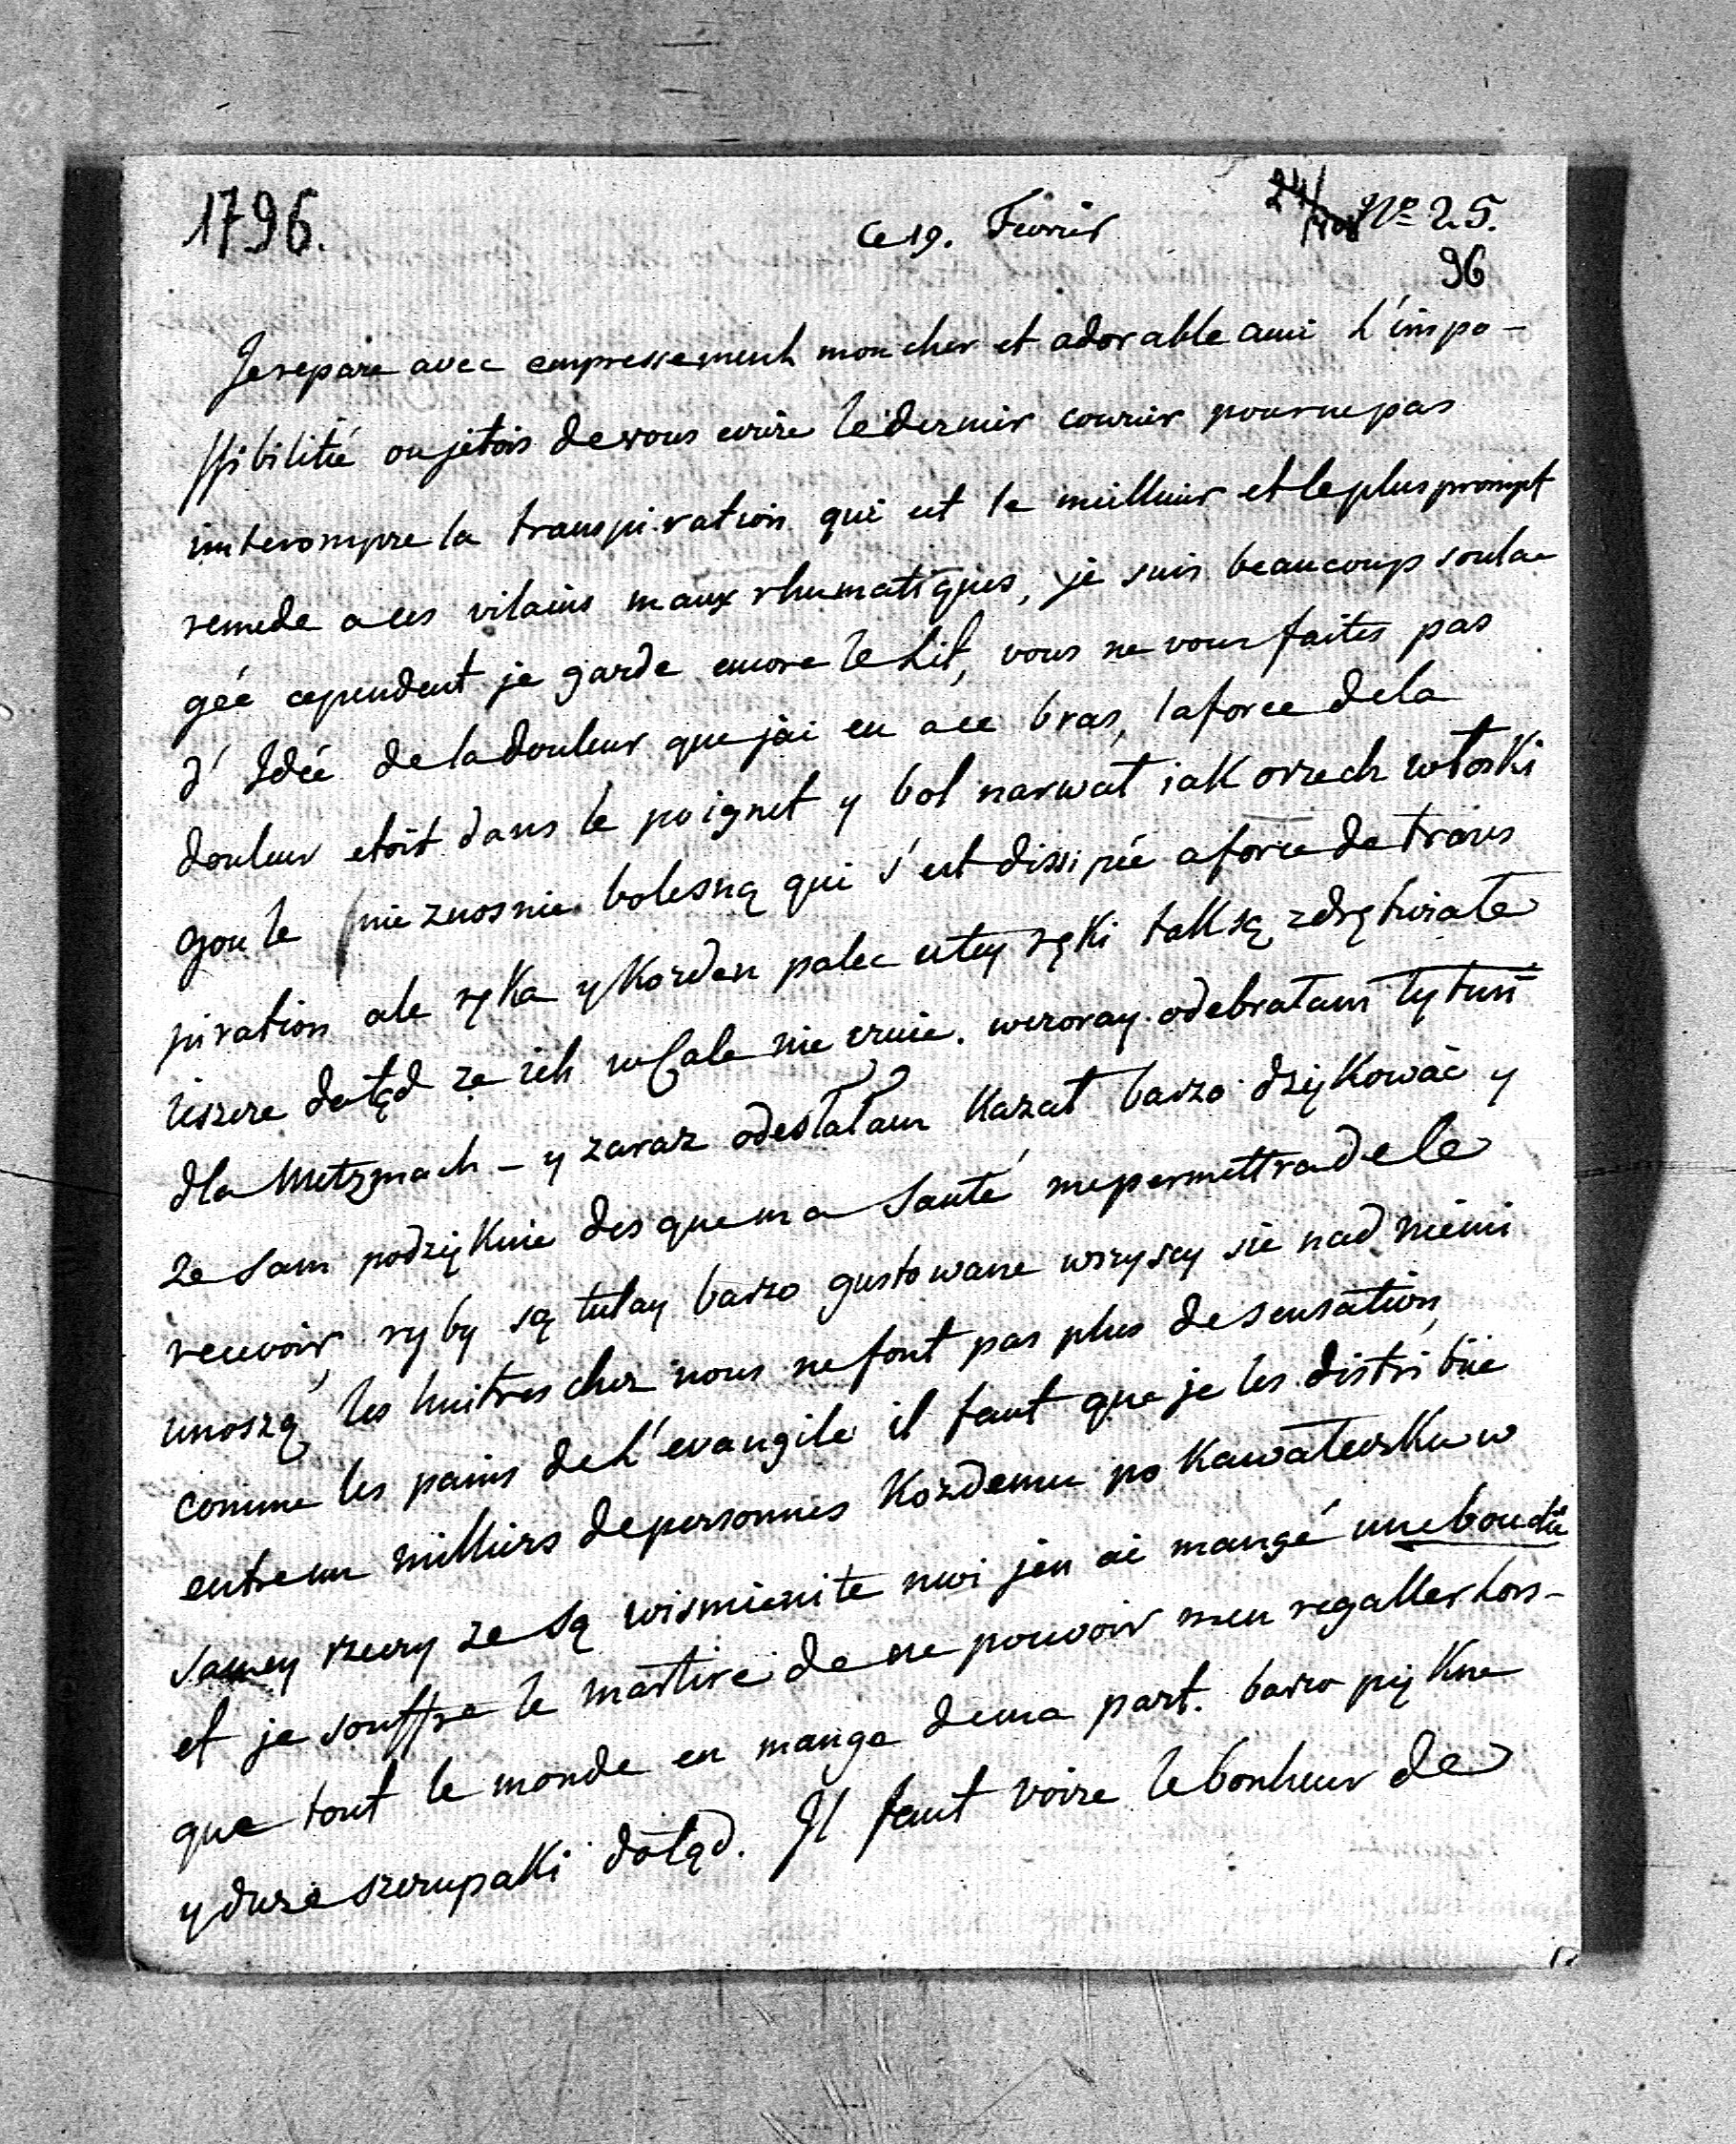 1796.
ce 19. Fevrier
24/ No 25.
96
Je repare avec empressement mon cher et adorable ami L'impo-
ssibilité ou jetois de vous ecrire le dernier courier pour ne pas
interompre la transpiration qui est le meilleur et le plus prompt
remede a ces vilains maux rhumatiques, je suis beaucoup soula-
géé cependent je garde encore le Lit, vous ne vous faites pas
d'Idée de la douleur que jai eu a ce bras, la force de la
douleur etoit dans le poignet y bol narwał iak orzech włoski
gou le nieznosnie bolesną qui s'est dissipée a force de trans
piration ale ręka y kozden palec u tey ręki tak są zdrętwiałe
ieszcze dotąd ze ich wcale nie czuie. wczoray odebrałam tytuń
dla Metzmach - y zaraz odesłałam Kazał barzo dziękować y
ze sam podziękuie des que ma santé me permettra de le
recevoir, ryby są tutay barzo gustowane wszyscy sie nad niemi
unoszą les huitres chez nous ne font pas plus de sensation,
comme les pains de L'evangile il faut que je les distribüe
entre un milliers de personnes Kozdemu po Kawałeczku w
samey rzeczy ze są wismienite moi jen ai mangé une boudü
et je souffre le martire de ne pouvoir men regaller hors-
que tout le monde en mange de ma part. barzo piękne
y duze szczupaki dotąd. Il faut voire le bonheur de